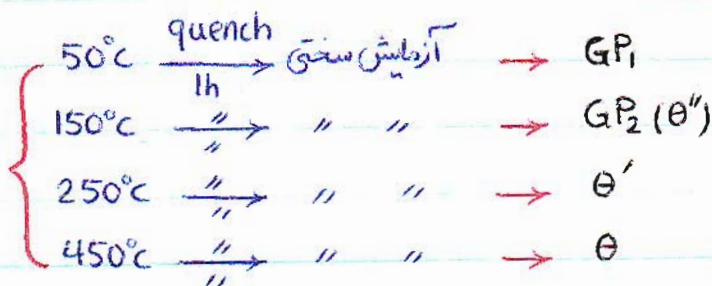 50°C quench 1h آزمایش سختی → GP₁
150°C 〃 〃 〃 〃 → GP₂ (θ″)
250°C 〃 〃 〃 〃 → θ′
450°C 〃 〃 〃 〃 → θ